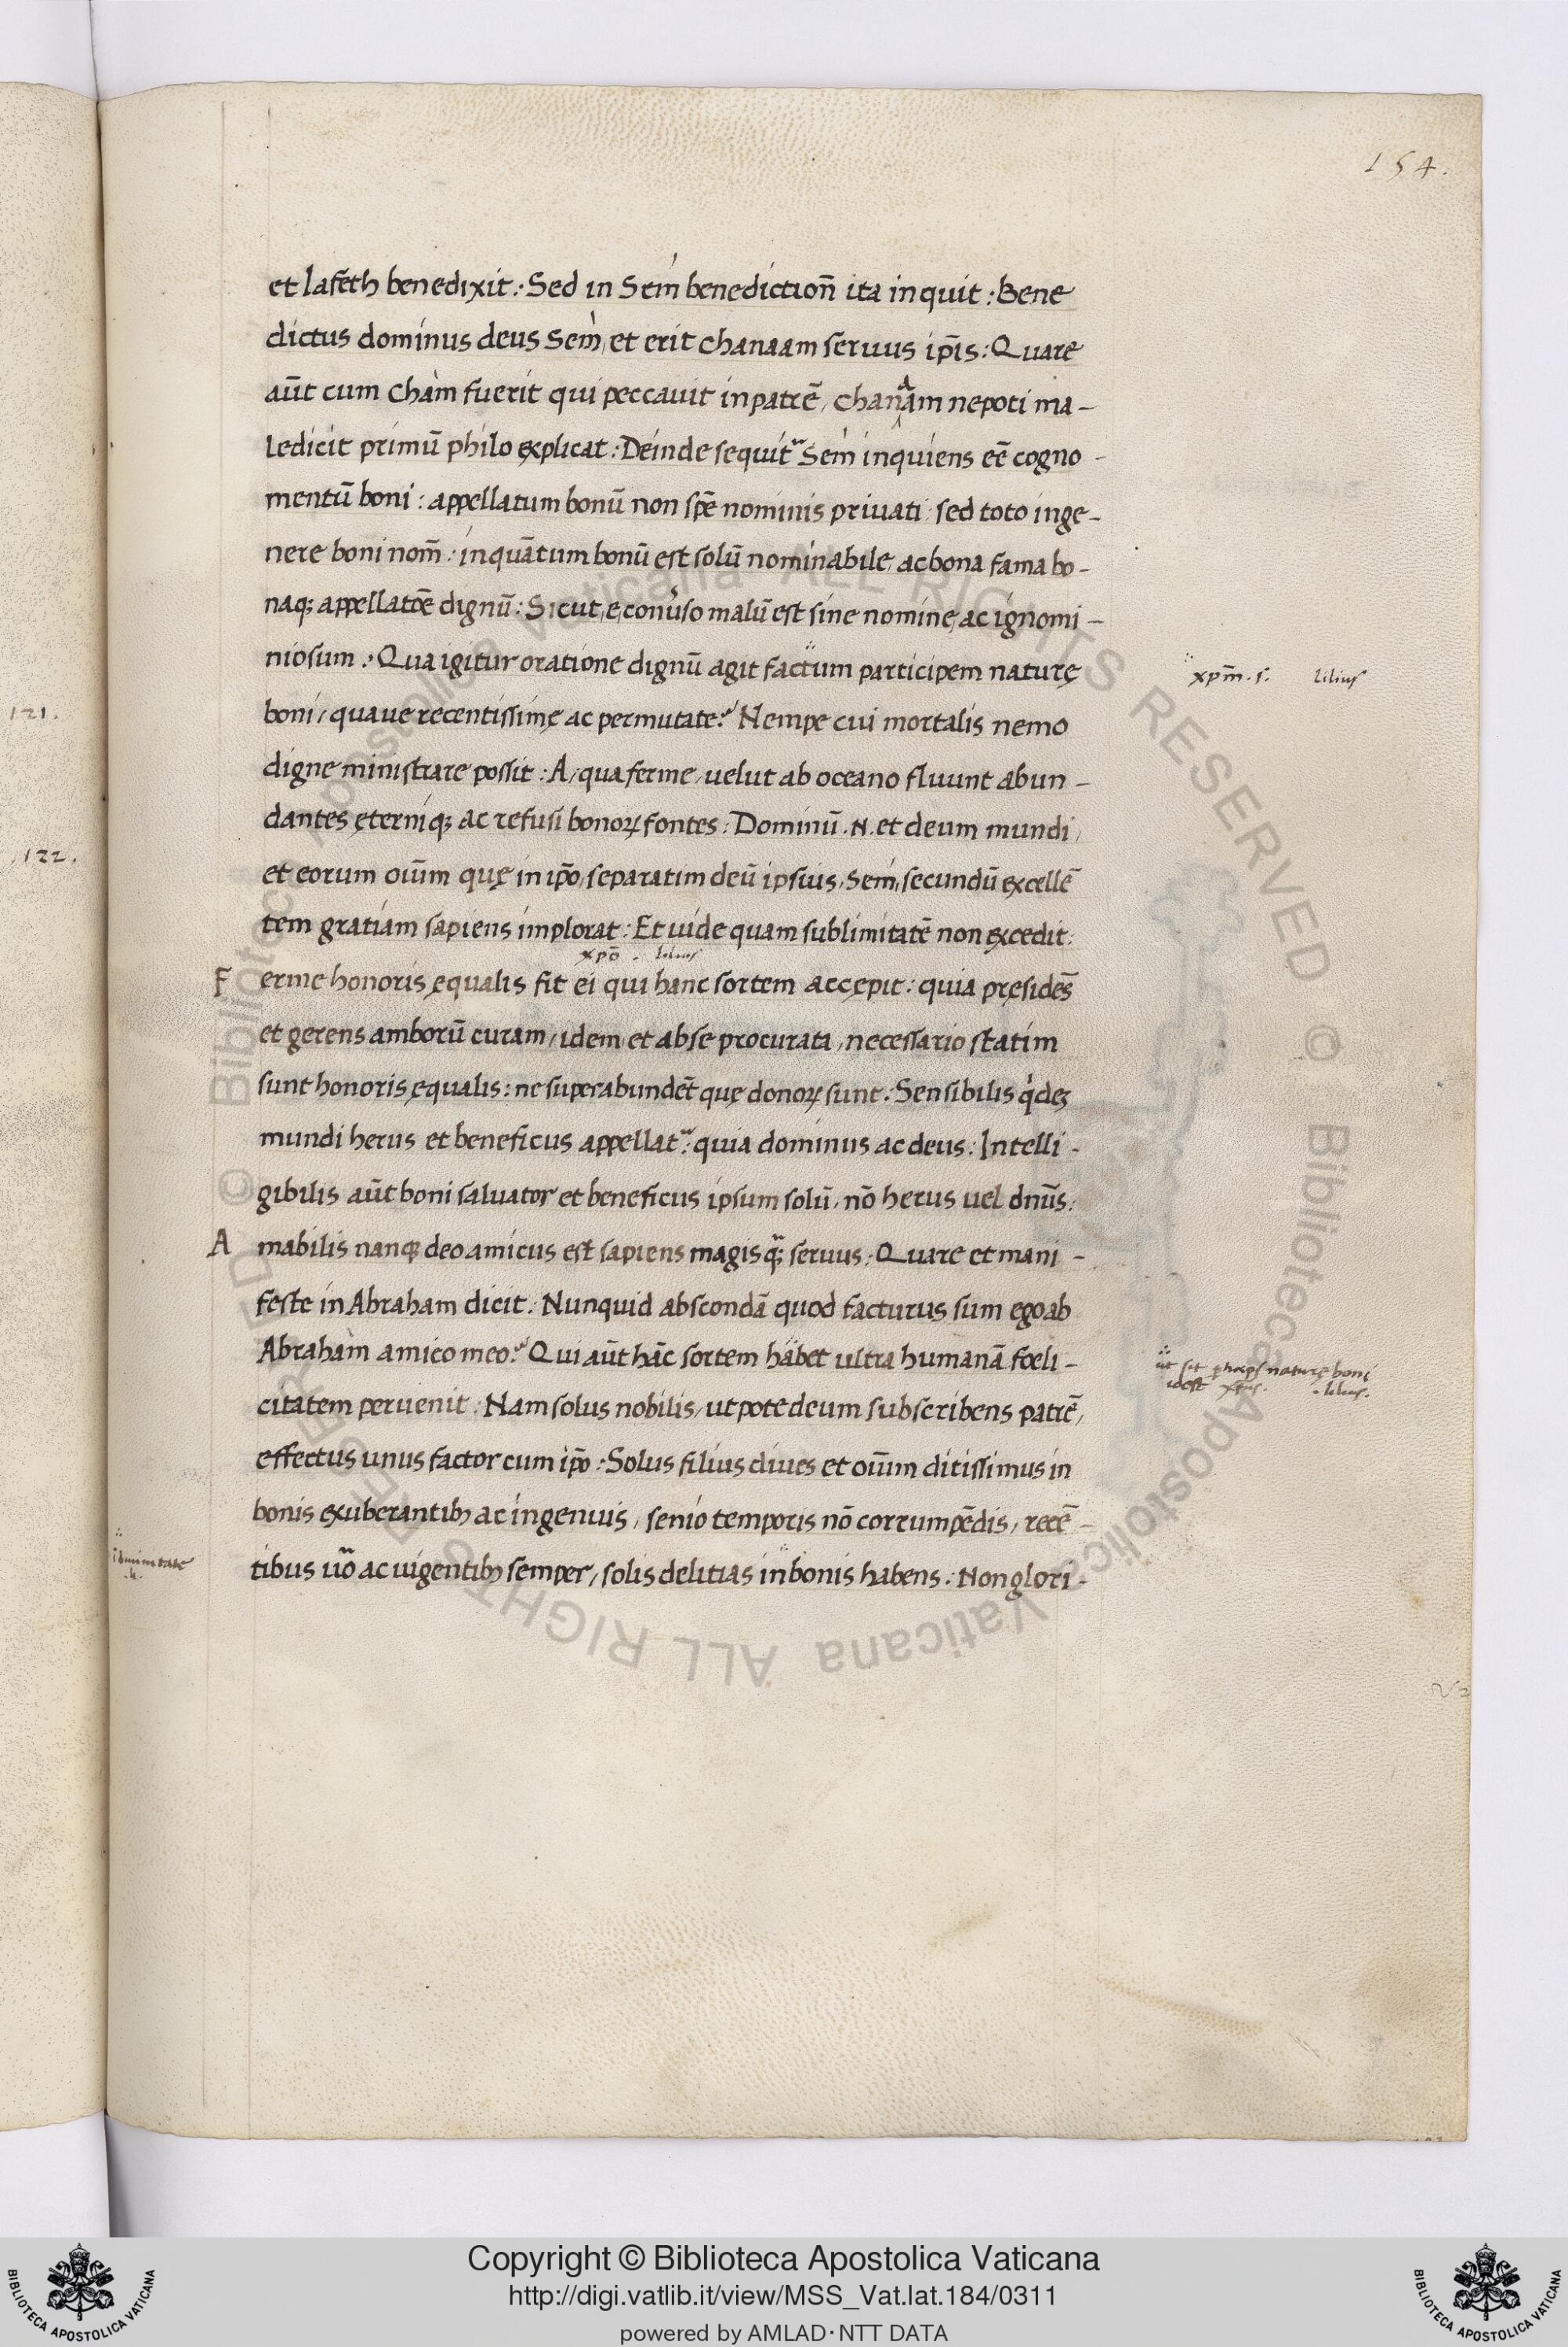 154.
et Iafeth benedixit: Sed in Sem benediction̄ ita inquit: Bene
dictus dominus deus Sem, et erit chanaam seruus ip̄is: Quare
aūt cum Cham fuerit qui peccauit in patrē, chanaam nepoti ma-
ledicit primū philo explicat: Deinde sequit᷑ Sem inquiens eē cogno-
mentū boni: appellatum bonū non spē nominis priuati sed toto in ge-
nere boni nom̄: inquātum bonū est solū nominabile, ac bona fama bo-
naq; appellatōe dignū: Sicut, e, conúso malū est sine nomine, ac ignomi-
niosum: Qua igitur oratione dignū agit factum participem naturę
xp̄m .s. lilius
121.
boni, quaue recentissimę ac permutate? Nempe cui mortalis nemo
digne ministrare possit: A, qua ferme, uelut ab oceano fluunt abun-
dantes ęterniq; ac refusi bonoꝝ fontes: Dominū .N. et deum mundi,
122.
et eorum oiūm quę in ip̄o, separatim deū ipsius, Sem, secundū excellē
tem gratiam sapiens implorat: Et uide quam sublimitatē non excedit:
xpō . lilius
Ferme honoris ęqualis fit ei qui hanc sortem accępit: quia pręsidēs
et gerens amborū curam, idem et ab se procurata, necessario statim
sunt honoris ęqualis: ne superabundēt quę donoꝝ sunt: Sensibilis q̇deꝫ
mundi herus et beneficus appellat᷑: quia dominus ac deus: Intelli-
gibilis aūt boni saluator et beneficus ipsum solū, nō herus uel dn̄us:
Amabilis nanq; deo amicus est sapiens magis q̄; seruus: Quare et mani-
feste in Abraham dicit: Nunquid abscondā quod facturus sum ego ab
Abraham amico meo? Qui aūt hāc sortem habet ultra humanā foeli-
ut sit naturę boni
idest xp̄us. lilius.
citatem peruenit: Nam solus nobilis, utpote deum subscribens patrē,
effectus unus factor cum ip̄o: Solus filius diues et oiūm ditissimus in
bonis exuberantibꝫ ac ingenuis, senio temporis nō corrumpēdis, recē-
tibus uo᷑ ac uigentibꝫ semper, solis delitias in bonis habens: Non glori-
Copyright © Biblioteca Apostolica Vaticana
http://digi.vatlib.it/view/MSS_Vat.lat.184/0311
powered by AMLAD·NTT DATA
BIBLIOTECA APOSTOLICA VATICANA
BIBLIOTECA APOSTOLICA VATICANA